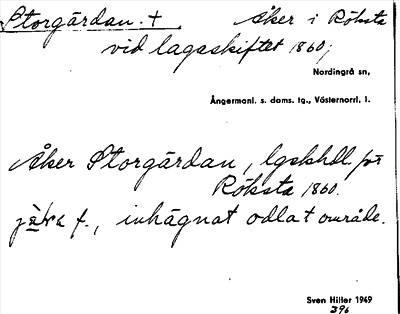 Storgårdan. † Åker i Röksta
vid lagaskiftet 1860;
Nordingrå sn,
Ångermanl. s. doms. tg., Västernorrl. l.
Åker Storgårdan, lgskhdl för
Röksta 1860.
f., inhägnat odlat område.
Sven Hiller 1949
396